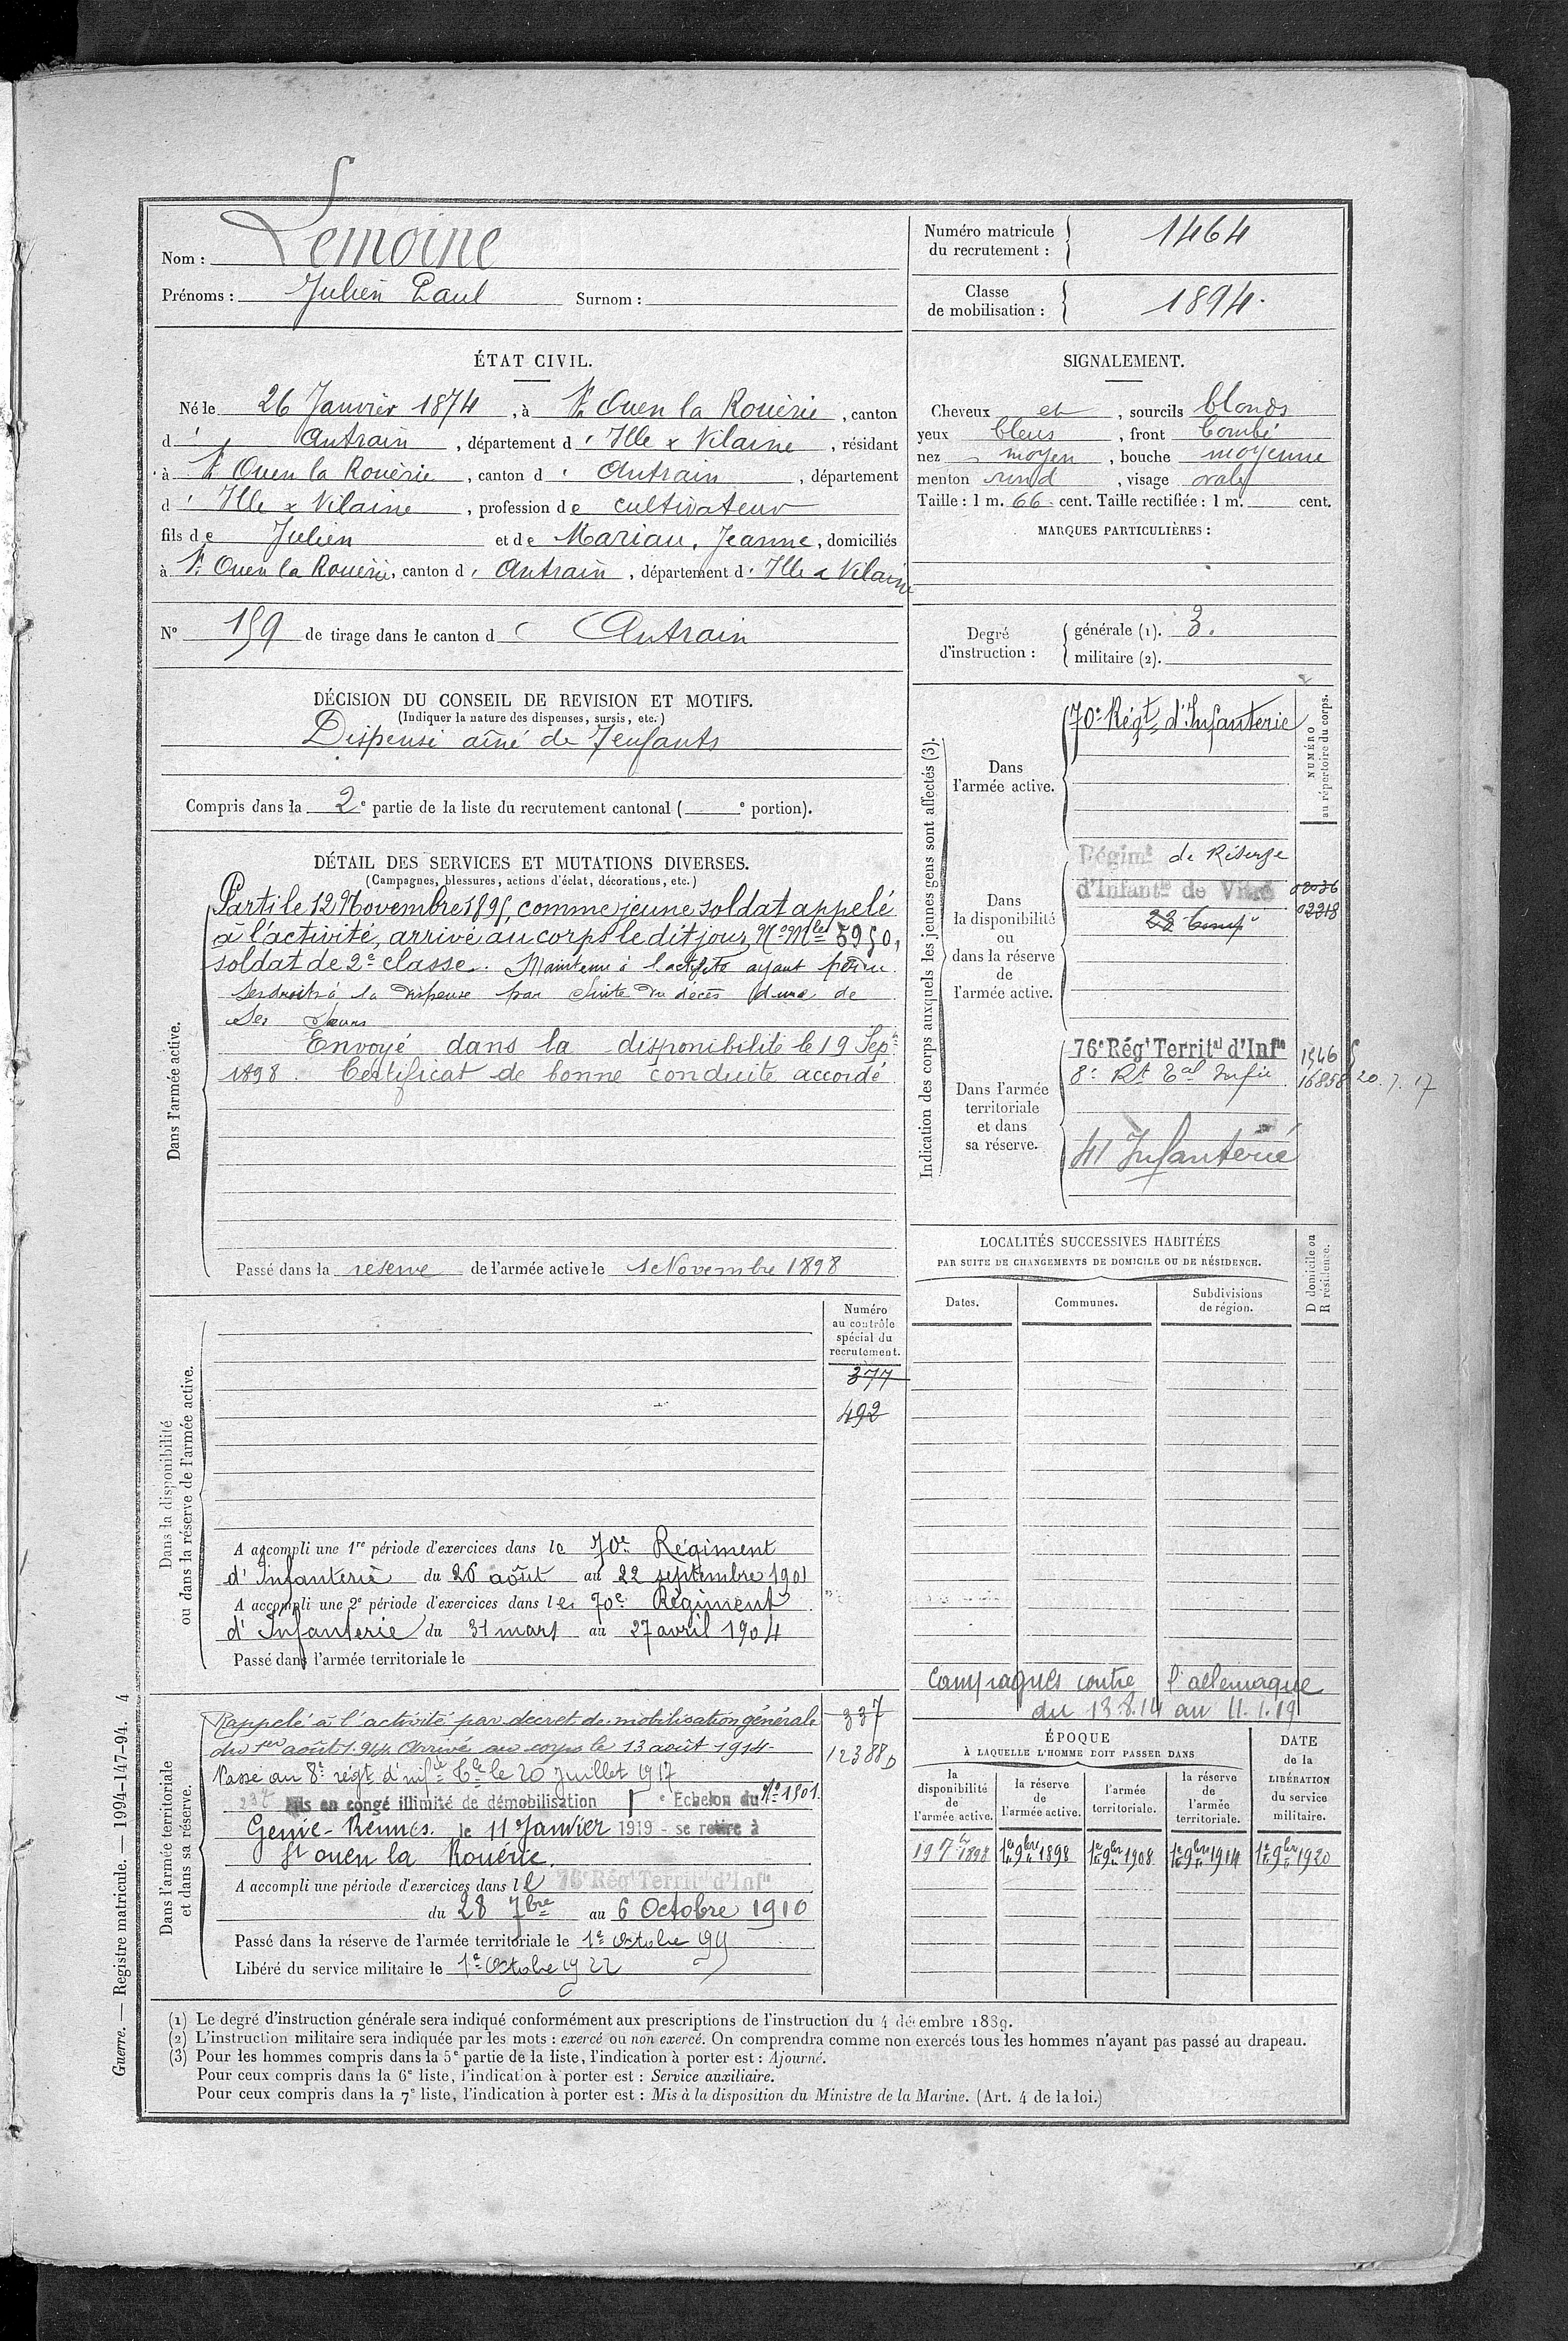 Nom : Lemoine
Prénoms : Julien Paul Surnom :
Numéro matricule du recrutement : 1464
Classe de mobilisation : 1894.
ÉTAT CIVIL.
Né le 26 Janvier 1874, à St Ouen la Rouërie, canton
d' Antrain, département d' Ille & Vilaine, résidant
à St Ouen la Rouërie, canton d' Antrain, département
d' Ille & Vilaine, profession de cultivateur
fils de Julien et de Mariau, Jeanne, domiciliés
à St Ouen la Rouërie, canton d' Antrain, département d' Ille & Vilaine
No 159 de tirage dans le canton d' Antrain
SIGNALEMENT.
Cheveux et, sourcils blonds
yeux bleus, front bombé
nez moyen, bouche moyenne
menton rond, visage ovale
Taille : 1 m. 66 cent. Taille rectifiée : 1 m. cent.
MARQUES PARTICULIÈRES :
Degré d'instruction : générale (1). 3.
militaire (2).
DÉCISION DU CONSEIL DE REVISION ET MOTIFS.
(Indiquer la nature des dispenses, sursis, etc.)
Dispensé aîné de 7 enfants
Compris dans la 2e partie de la liste du recrutement cantonal ( e portion).
DÉTAIL DES SERVICES ET MUTATIONS DIVERSES.
(Campagnes, blessures, actions d'éclat, décorations, etc.)
Dans l'armée active.
Parti le 12 Novembre 1895, comme jeune soldat appelé
à l'activité, arrivé au corps le dit jour, No Mle 5950,
soldat de 2e classe. Maintenu à l'activité ayant perdu
ses droits à la dispense par suite du décès d'une de
ses sœurs
Envoyé dans la disponibilité le 19 Sepbre
1898. Certificat de bonne conduite accordé
Passé dans la réserve de l'armée active le 1er Novembre 1898
Indication des corps auxquels les jeunes gens sont affectés (3).
NUMÉRO au répertoire du corps.
Dans l'armée active.
70e Régt d'Infanterie
Dans la disponibilité ou dans la réserve de l'armée active.
Régimt de Réserve
d'Infantie de Vitré
02036
02218
Dans l'armée territoriale et dans sa réserve.
76e Régt Territal d'Infie
1546
8e Rt Tal Infie
16858 20.7.17
41 Infanterie
LOCALITÉS SUCCESSIVES HABITÉES
PAR SUITE DE CHANGEMENTS DE DOMICILE OU DE RÉSIDENCE.
Dates. Communes. Subdivisions de région. D domicile ou R résidence.
Dans la disponibilité ou dans la réserve de l'armée active.
Numéro au contrôle spécial du recrutement.
377
492
A accompli une 1re période d'exercices dans le 70e Régiment
d'Infanterie du 26 août au 22 septembre 1901
A accompli une 2e période d'exercices dans le 70e Régiment
d'Infanterie du 31 mars au 27 avril 1904
Passé dans l'armée territoriale le
Campagnes contre l'allemagne
du 13.8.14 au 11.1.19
Dans l'armée territoriale et dans sa réserve.
Rappelé à l'activité par decret de mobilisation générale
du 1er août 1914 Arrivé au corps le 13 août 1914
337
12388
Passé au 8e régt d'infie Tle le 20 Juillet 1917
Mis en congé illimité de démobilisation e Echelon du No 1501
Genie-Rennes. le 11 Janvier 1919 - se retire à
St ouen la Rouërie.
A accompli une période d'exercices dans le 76e Régt Territal d'Infie
du 28 7bre au 6 Octobre 1910
Passé dans la réserve de l'armée territoriale le 1er Octobre
Libéré du service militaire le 1er Octobre 1922
ÉPOQUE
À LAQUELLE L'HOMME DOIT PASSER DANS
la disponibilité de l'armée active.
la réserve de l'armée active.
l'armée territoriale.
la réserve de l'armée territoriale.
DATE de la LIBÉRATION du service militaire.
19 7bre 1898 1er 9bre 1898 1er 9bre 1908 1er 9bre 1914 1er 9bre 1920
(1) Le degré d'instruction générale sera indiqué conformément aux prescriptions de l'instruction du 4 décembre 1889.
(2) L'instruction militaire sera indiquée par les mots : exercé ou non exercé. On comprendra comme non exercés tous les hommes n'ayant pas passé au drapeau.
(3) Pour les hommes compris dans la 5e partie de la liste, l'indication à porter est : Ajourné.
Pour ceux compris dans la 6e liste, l'indication à porter est : Service auxiliaire.
Pour ceux compris dans la 7e liste, l'indication à porter est : Mis à la disposition du Ministre de la Marine. (Art. 4 de la loi.)
Guerre. — Registre matricule. — 1994-147-94. 4